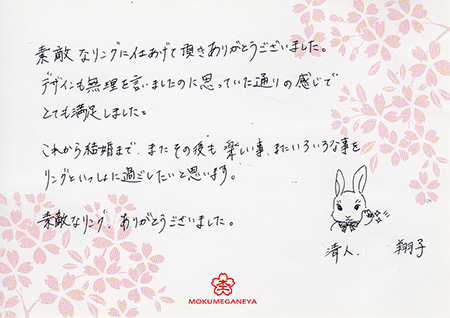 素敵なリングに仕あげて頂きありがとうございました。
デザインも無理を言いましたのに思っていた通りの感じで
とても満足しました。
これから結婚まで、またその後も楽しい事、またいろいろな事を
リングといっしょに過ごしたいと思います。
素敵なリング、ありがとうございました。
清人、 翔子
MOKUMEGANEYA